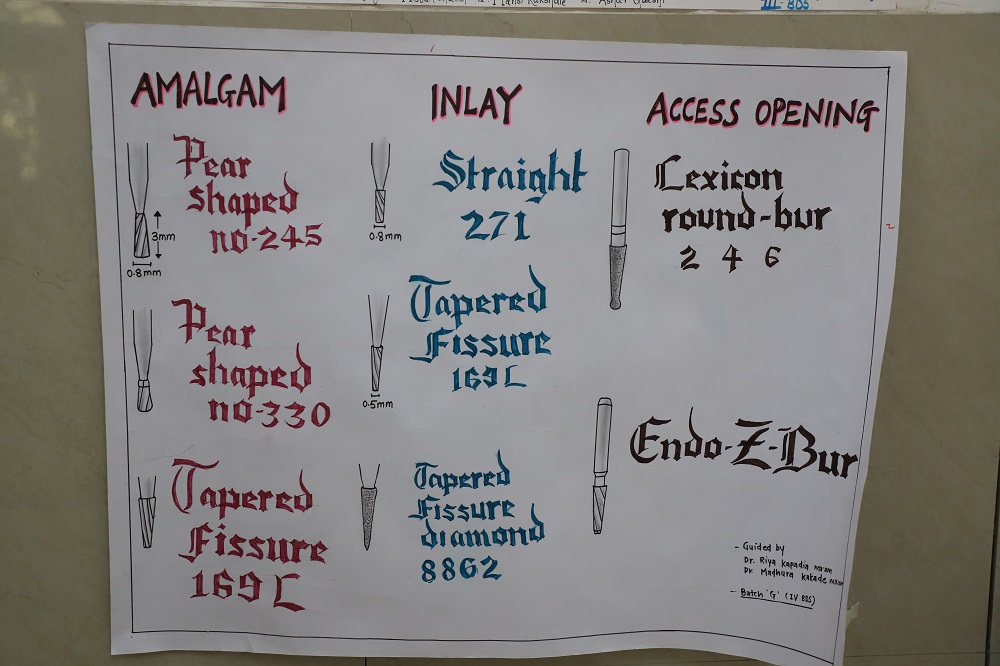 III-BDS
AMALGAM
Pear
shaped
no-245
3mm
0.8mm
Pear
shaped
no-330
Tapered
Fissure
169 L
INLAY
Straight
271
0.8mm
Tapered
Fissure
169 L
0.5mm
Tapered
Fissure
diamond
8862
ACCESS OPENING
Lexicon
round-bur
2 4 6
Endo-Z-Bur
- Guided by
Dr. Riya Kapadia ma'am
Dr. Madhura Kakade ma'am
- Batch 'G' (IV BDS)